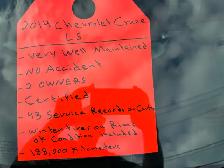 2014 Chevrolet Cruze
LS
- Very Well Maintained
- NO Accident
- 2 OWNERS
- Certified
- 43 Service Records on Carfax
- Winter Tires on Rims
Condition included
- 188,000 Kilometers